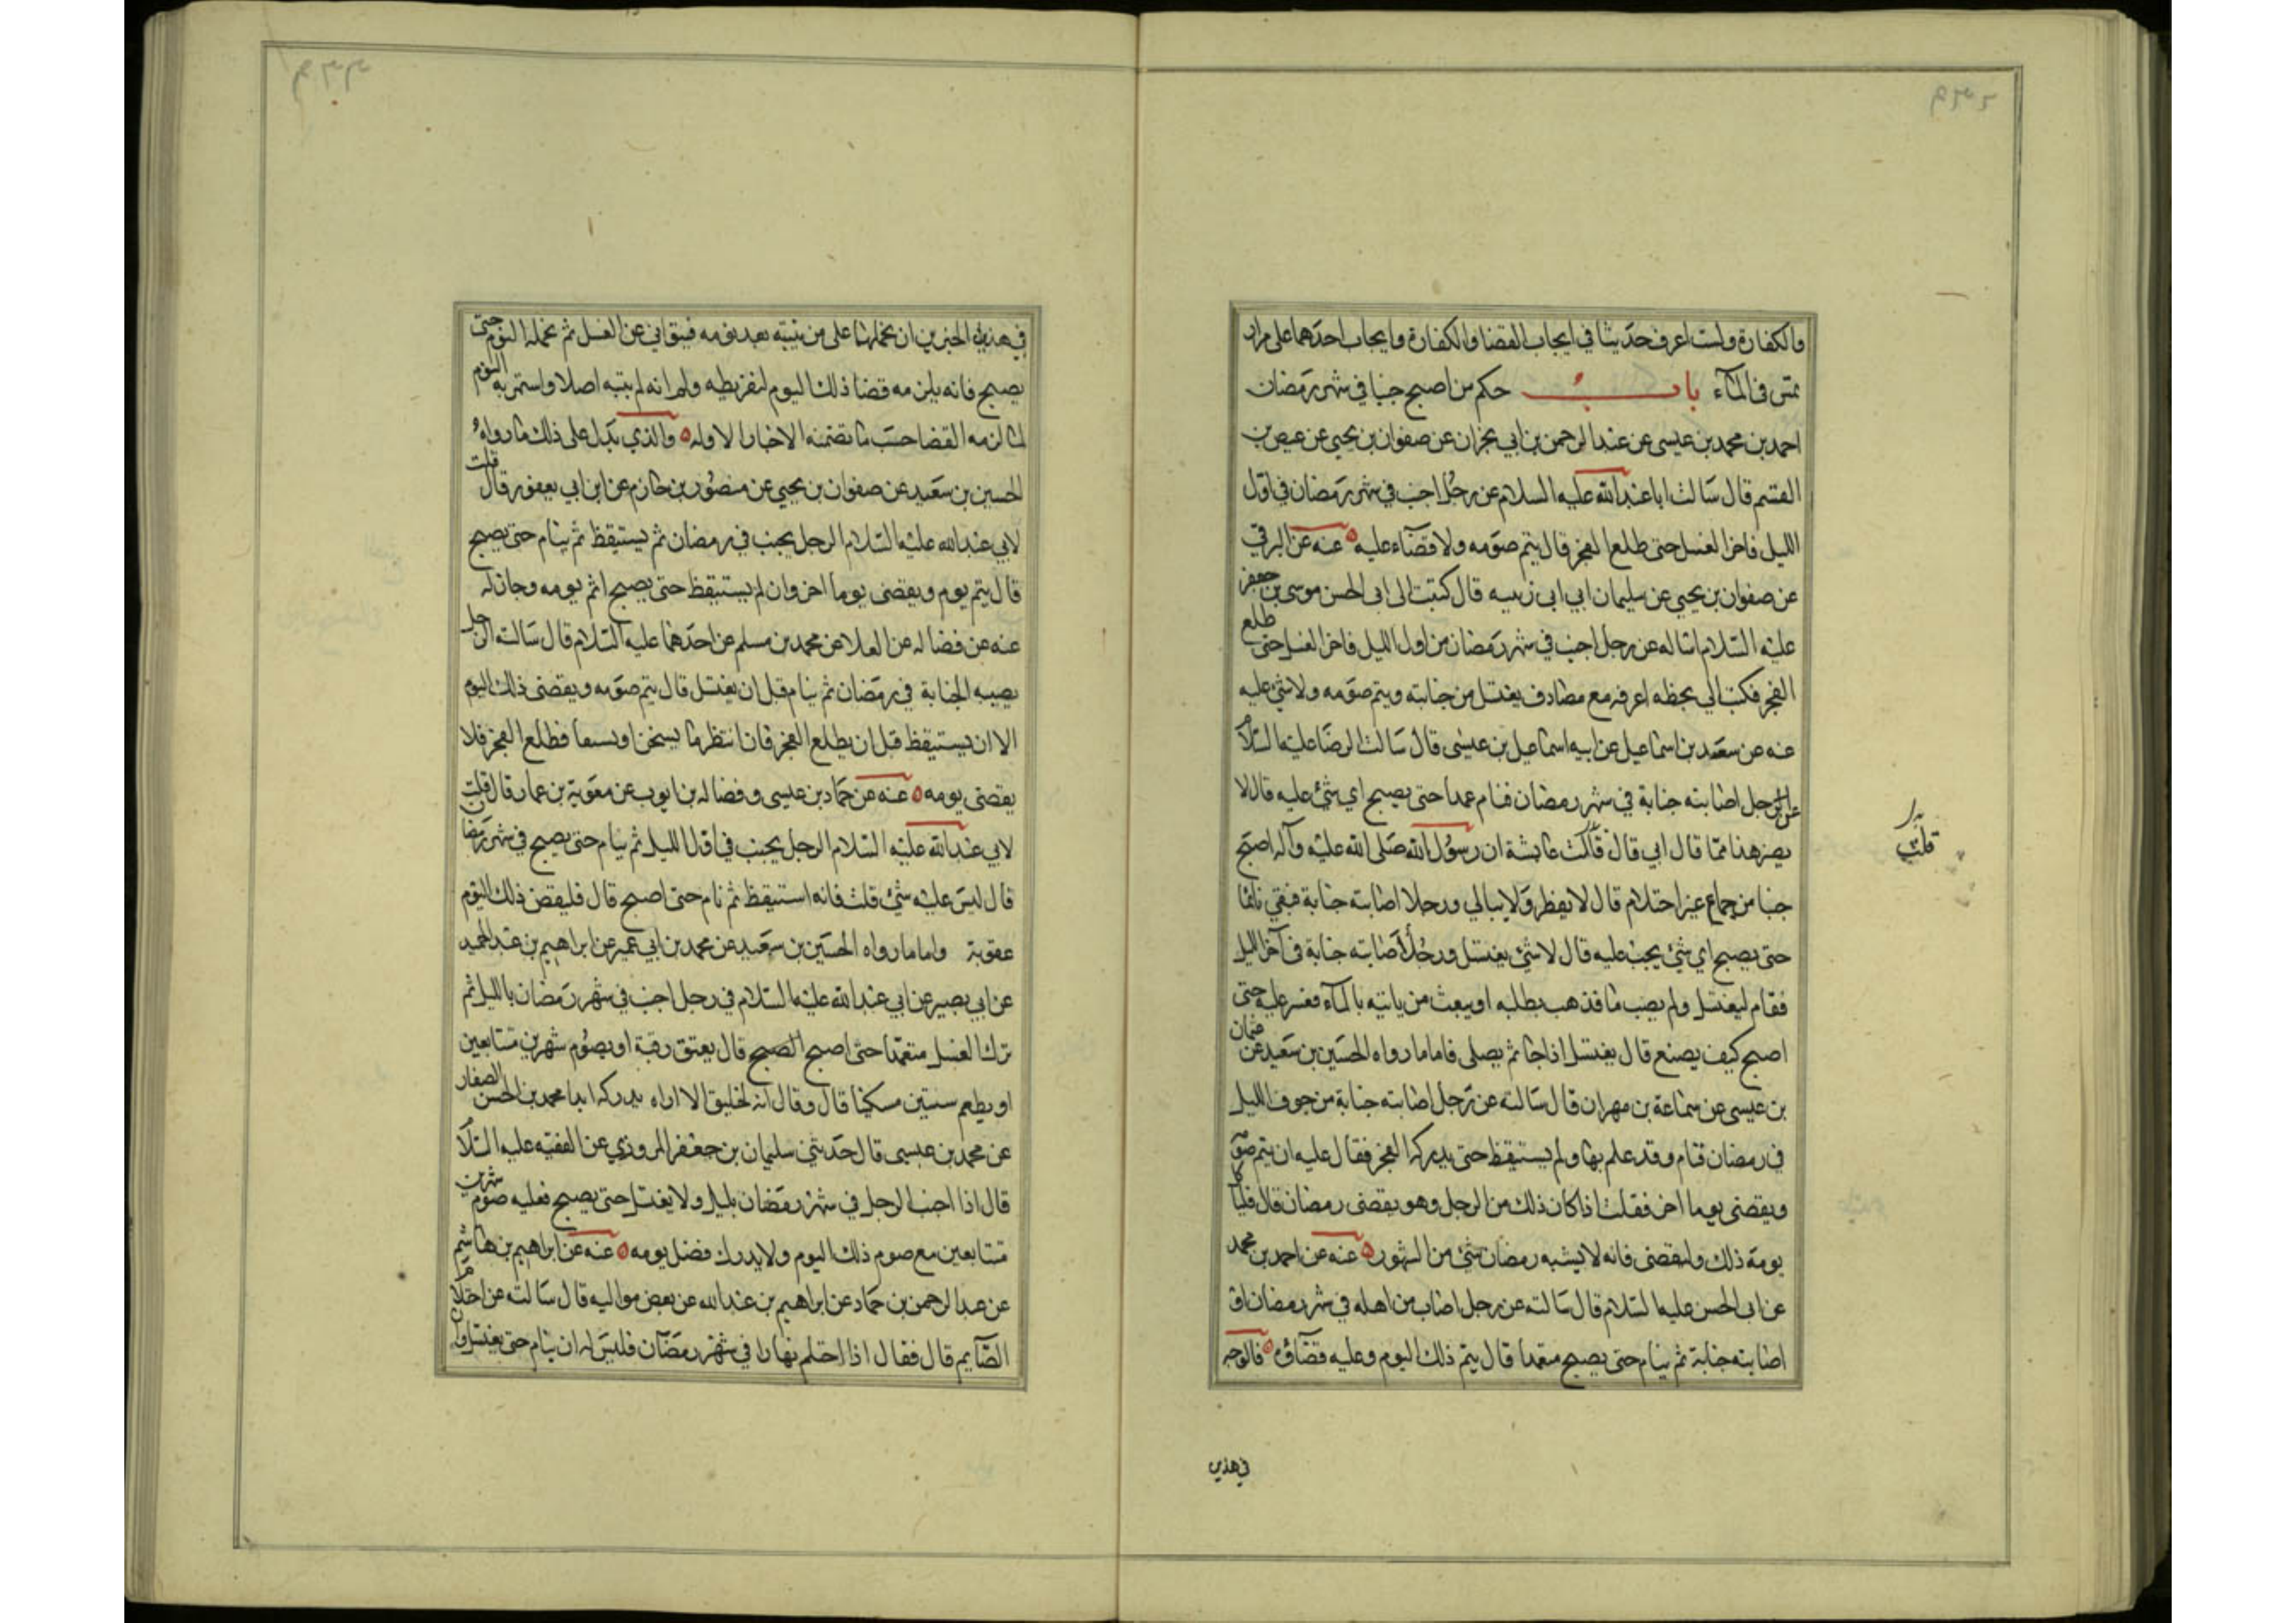 والكفارة ولست اعرف حديثا في ايجاب القضا والكفارة وايجاب احدهما على من ار
تمس في المآء باب حكم من اصبح جنبا في شهر رمضان
احمد بن محمد بن عيسى عن عبد الرحمن بن ابي نجران عن صفوان بن يحيى عن عيص بن
القسم قال سالت ابا عبد الله عليه السلام عن رجل اجنب في شهر رمضان في اول
الليل فاخر الغسل حتى طلع الفجر قال يتم صومه ولا قضاء عليه عنه عن البرقي
عن صفوان بن يحيى عن سليمان ابي زينبه قال كتبت الى ابى الحسن موسى بن جعفر
عليه السلام اساله عن رجل اجنب في شهر رمضان من اول الليل فاخر الغسل حتى طلع
الفجر فكتب الي بخطه اعرفه مع مصادف يغتسل من جنابته ويتم صومه ولا شئ عليه
عنه عن سعد بن اسماعيل عن ابيه اسماعيل بن عيسى قال سالت الرضا عليه السلام
عن الرجل اصابته جنابة في شهر رمضان فنام عمدا حتى يصبح اي شئ عليه قال لا
يضر هذا مما قال ابي قال قالت عايشة ان رسول الله صلى الله عليه وآله اصبح
جنبا من جماع غير احتلام قال لا يفطر ولا يبالي ورجل اصابته جنابة فبقي نائما
حتى يصبح اي شئ يجب عليه قال لا شئ يغتسل ورجل اصابته جنابة في آخر الليل
فقام ليغتسل ولم يصب ما فذهب يطلبه او يبعث من ياتيه بالمآء فعسر عليه حتى
اصبح كيف يصنع قال يغتسل اذا جا ثم يصلى فاما ما رواه الحسين بن سعيد عن عثمان
بن عيسى عن سماعة بن مهران قال سالته عن رجل اصابته جنابة من جوف الليل
في رمضان فنام وقد علم بها ولم يستيقظ حتى يدركه الفجر فقال عليه ان يتم صومه
ويقضى يوما اخر فقلت اذا كان ذلك من الرجل وهو يقضى رمضان قال فلياكل
يومه ذلك وليقضى فانه لا يشبه رمضان شئ من الشهور عنه عن احمد بن محمد
عن ابى الحسن عليه السلام قال سالته عن رجل اصاب من اهله في شهر رمضان او
اصابته جنابة ثم ينام حتى يصبح متعمدا قال يتم ذلك اليوم وعليه قضاؤه فالوجه
في هذين
قلت
في هذين الخبرين ان نحملهما على من ينتبه بعد نومه فيتوانى عن الغسل ثم يحمله النوم حتى
يصبح فانه يلزمه قضا ذلك اليوم لتفريطه ولو انه لم ينتبه اصلا واستمر به النوم
لما لزمه القضا حسب ما تضمنه الاخبار الاوله والذي يدل على ذلك ما رواه
الحسين بن سعيد عن صفوان بن يحيى عن منصور بن حازم عن ابن ابي يعفور قال قلت
لابي عبد الله عليه السلام الرجل يجنب في رمضان ثم يستيقظ ثم ينام حتى يصبح
قال يتم يومه ويقضى يوما اخر وان لم يستيقظ حتى يصبح اتم يومه وجاز له
عنه عن فضاله عن العلا عن محمد بن مسلم عن احدهما عليه السلام قال سالته الرجل
يصيبه الجنابة في رمضان ثم ينام قبل ان يغتسل قال يتم صومه ويقضى ذلك اليوم
الا ان يستيقظ قبل ان يطلع الفجر فان انتظر ما يسخن او يستقا فطلع الفجر فلا
يقضى يومه عنه عن حماد بن عيسى وفضاله بن ايوب عن معوية بن عمار قال قلت
لابي عبد الله عليه السلام الرجل يجنب في اول الليل ثم ينام حتى يصبح في شهر رمضان
قال ليس عليه شئ قلت فانه استيقظ ثم نام حتى اصبح قال فليقض ذلك اليوم
عقوبة واما ما رواه الحسين بن سعيد عن محمد بن ابي عمير عن ابراهيم بن عبد الحميد
عن ابي بصير عن ابي عبد الله عليه السلام في رجل اجنب في شهر رمضان بالليل ثم
ترك الغسل متعمدا حتى اصبح الصبح قال يعتق رقبة او يصوم شهرين متتابعين
او يطعم ستين مسكينا قال وقال انه لخليق الا اراه يدركه ابدا محمد بن الحسن الصفار
عن محمد بن عيسى قال حدثني سليمان بن جعفر المروزي عن الفقيه عليه السلام
قال اذا اجنب الرجل في شهر رمضان بليل ولا يغتسل حتى يصبح فعليه صوم شهرين
متتابعين مع صوم ذلك اليوم ولا يدرك فضل يومه عنه عن ابراهيم بن هاشم
عن عبد الرحمن بن حماد عن ابراهيم بن عبد الله عن بعض مواليه قال سالته عن احتلام
الصآيم قال فقال اذا احتلم نهارا في شهر رمضان فليس له ان ينام حتى يغتسل وان